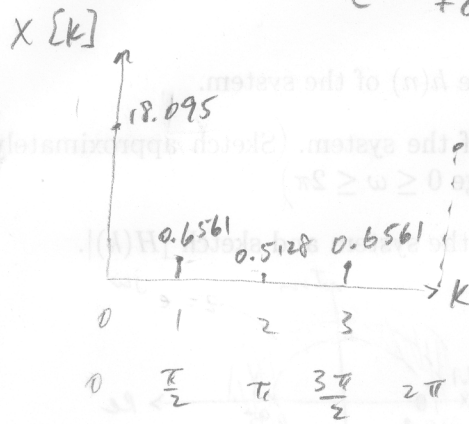 X[k]
18.095
0.6561 0.5128 0.6561
k
0 1 2 3
0 π/2 π 3π/2 2π